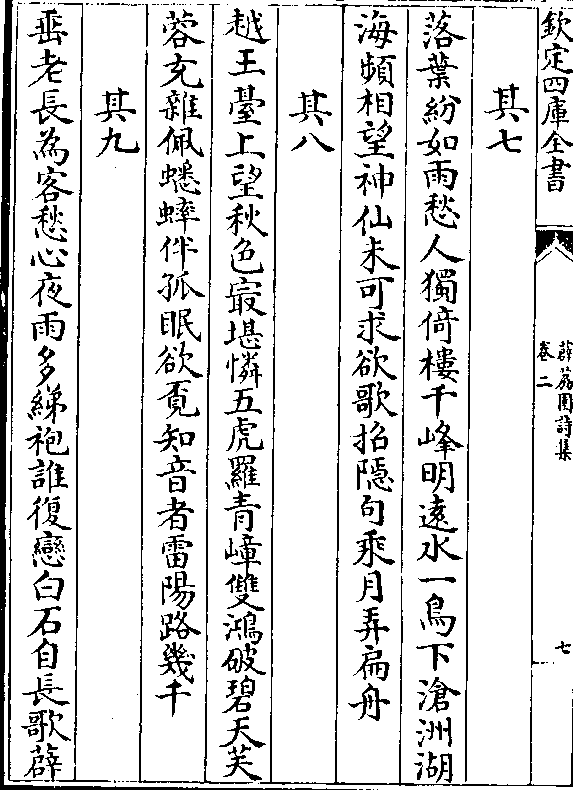 欽定四庫全書
薜荔園詩集
卷二
七
其七
落葉紛如雨愁人獨倚樓千峰明遠水一鳥下滄洲湖
海頻相望神仙未可求欲歌招隱句乘月弄扁舟
其八
越王臺上望秋色㝡堪憐五虎羅青嶂雙鴻破碧天芙
蓉充雜佩蟋蟀伴孤眠欲覔知音者雷陽路幾千
其九
垂老長為客愁心夜雨多綈袍誰復戀白石自長歌薜